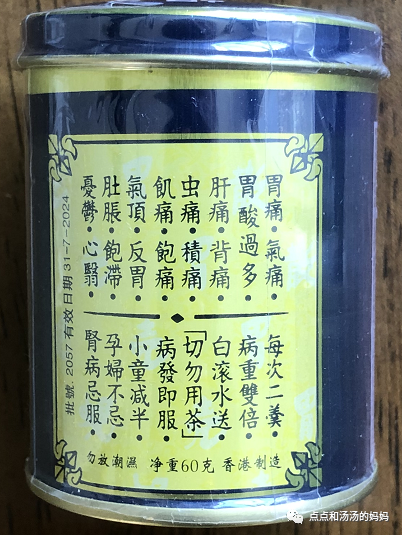 胃痛·氣痛·
胃酸過多·
肝痛·背痛·
虫痛·積痛·
飢痛·飽痛·
氣頂·反胃·
肚脹·飽滯·
憂鬱·心翳·
每次二羹·
病重雙倍·
白滾水送·
「切勿用茶」
病發即服·
小童減半·
孕婦不忌·
腎病忌服·
批號. 2057 有效日期 31-7-2024
勿放潮濕 淨重60克 香港制造
点点和汤汤的妈妈